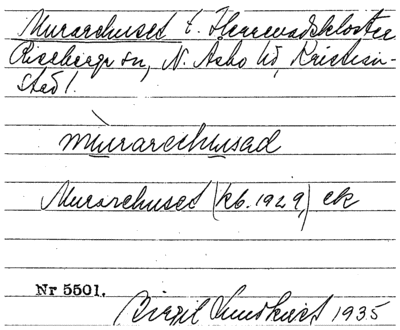 Murarehuset t. Herrevadskloster
Riseberga sn, N. Åsbo hd, Kristian-
stad l.
mùrarehusad
Murarehuset (kb. 1929), ek
Nr 5501.
Birgit Lundkvist 1935